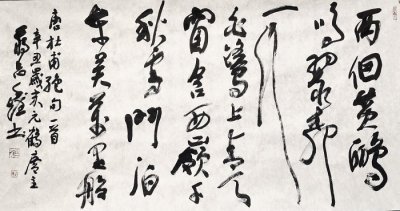 两個黄鸝
鳴翠柳
一行
白鷺上青天
窗含西嶺千
秋雪門泊
東吴萬里船
唐杜甫絶句一首
辛丑歲元鶴主
书